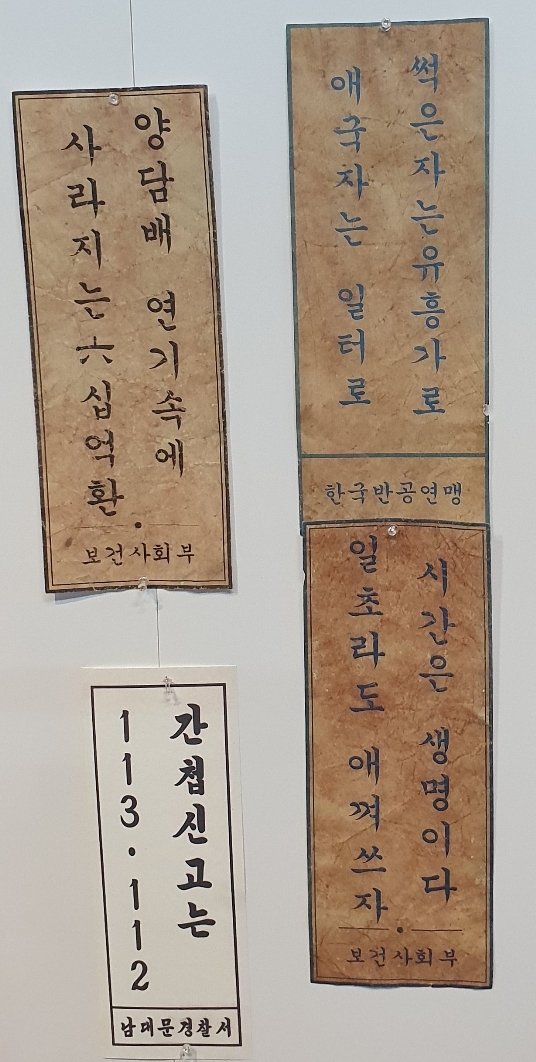 양담배 연기속에
사라지는 六십억환
보건사회부
썩은자는유흥가로
애국자는 일터로
한국반공연맹
간첩신고는
113·112
남대문경찰서
시간은 생명이다
일초라도 애껴쓰자
보건사회부